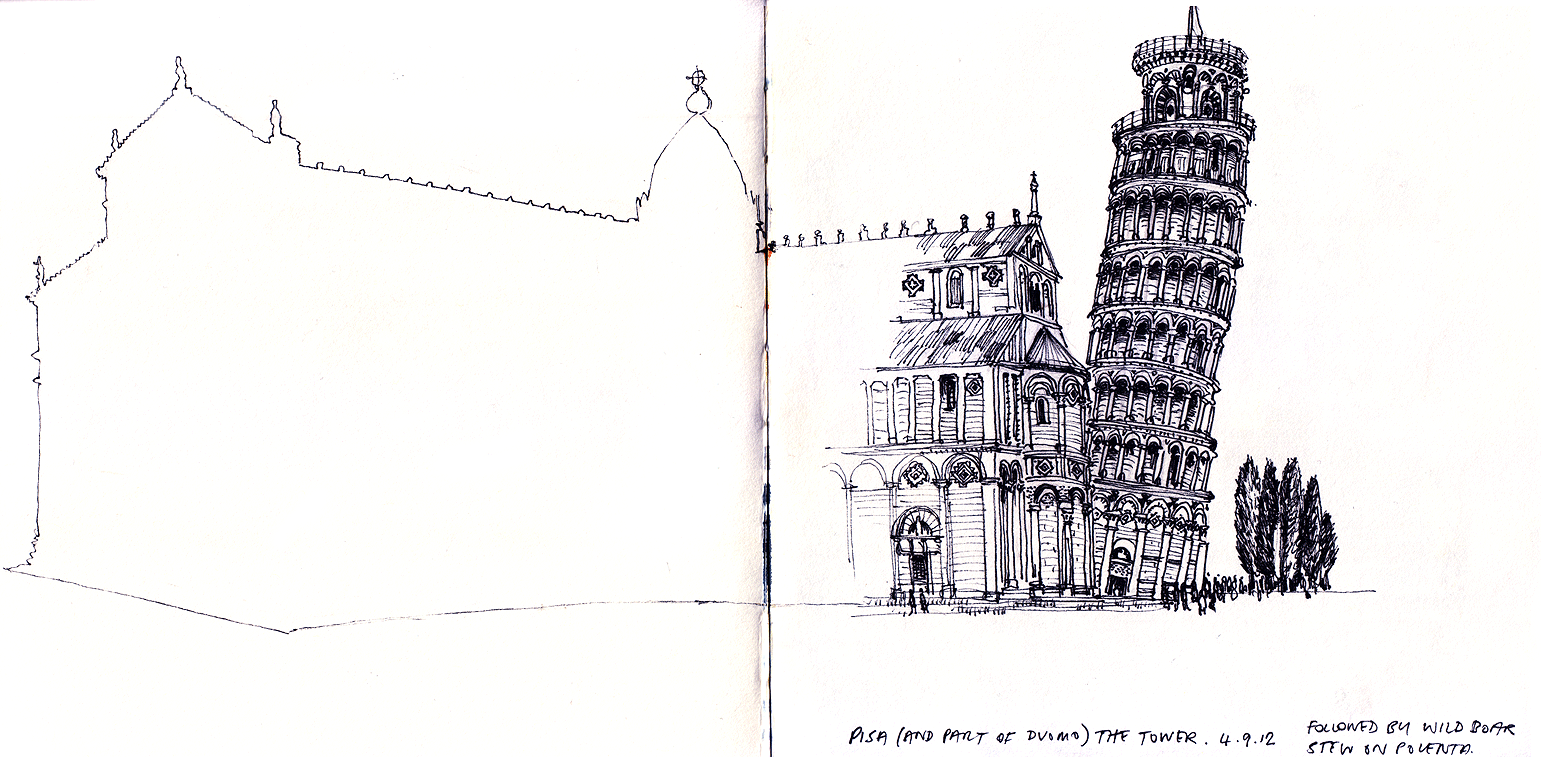 PISA (AND PART OF DUOMO) THE TOWER. 4.9.12
FOLLOWED BY WILD BOAR
STEW ON POLENTA.